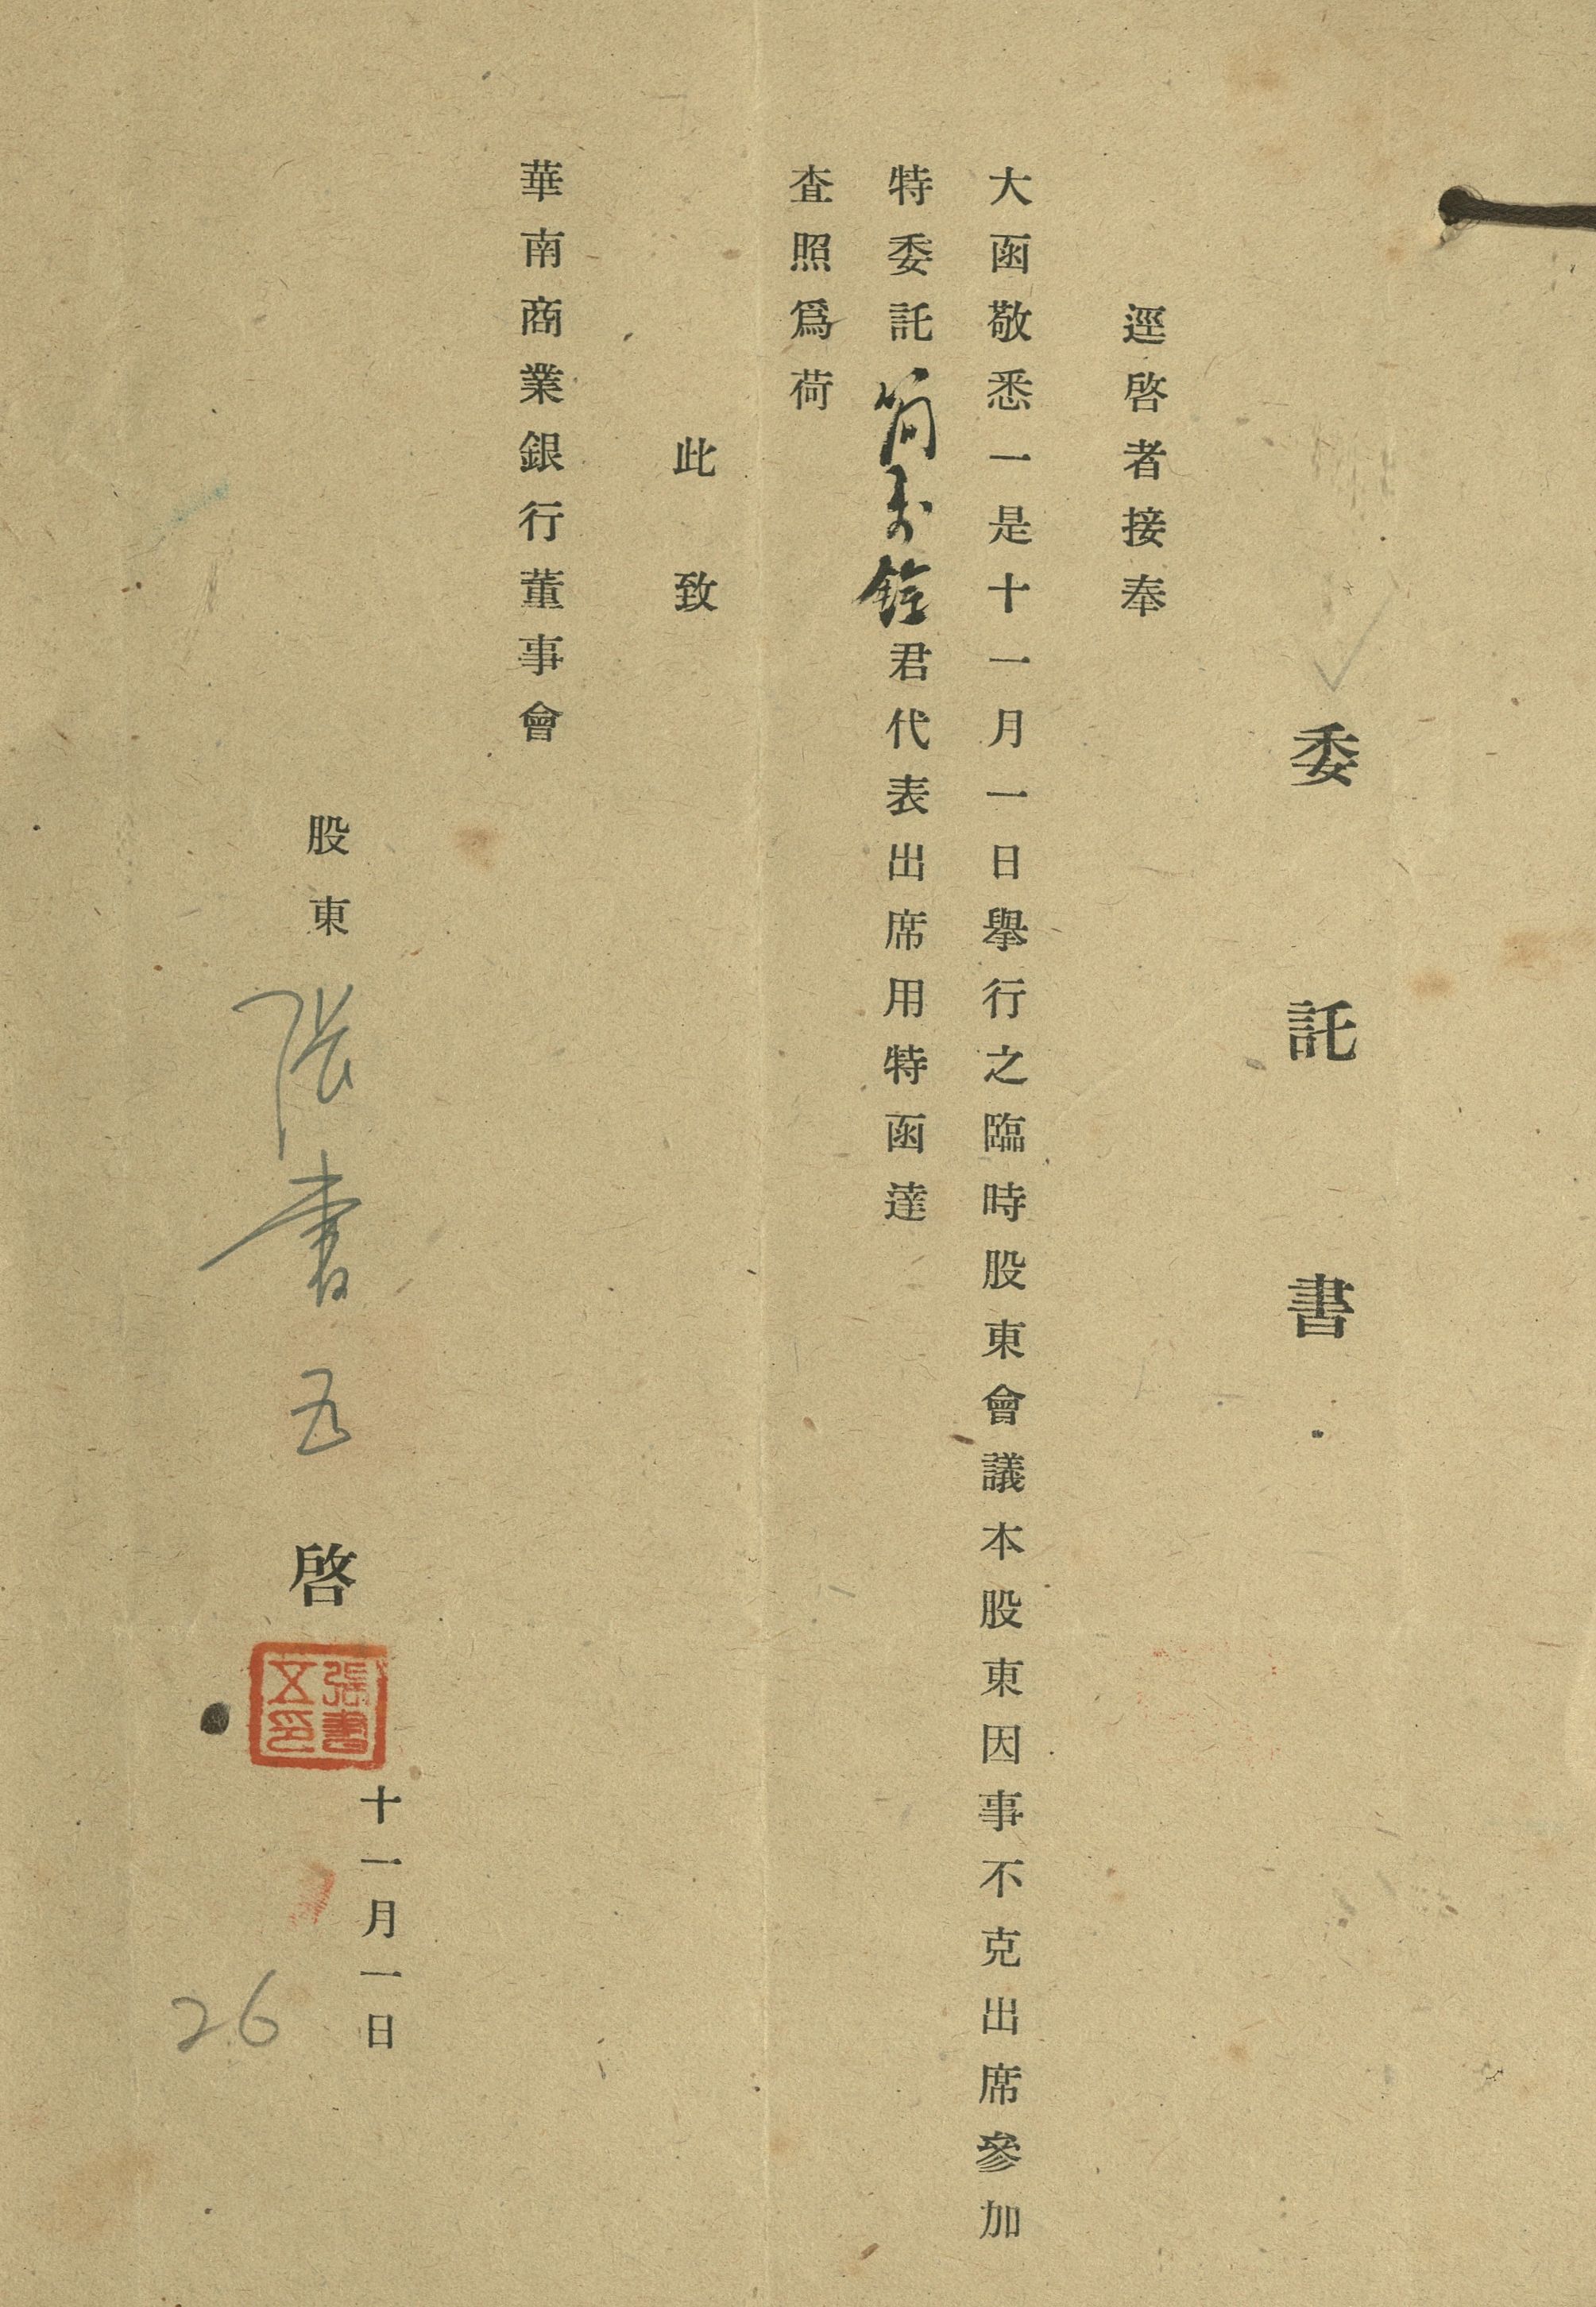 委託書
逕啓者接奉
大函敬悉一是十一月一日舉行之臨時股東會議本股東因事不克出席參加
特委託簡銓君代表出席用特函達
査照爲荷
此致
華南商業銀行董事會
股東張書五啓
張書五印
十一月一日
26